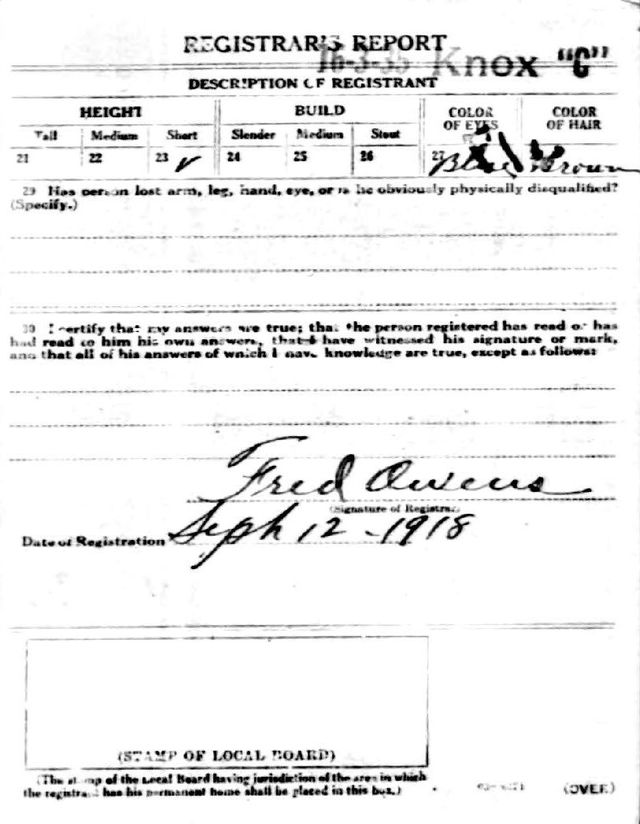 REGISTRAR'S REPORT
16-3-35 Knox "C"
DESCRIPTION OF REGISTRANT
HEIGHT BUILD COLOR OF EYES COLOR OF HAIR
Tall Medium Short Slender Medium Stout
21 22 23 ✓ 24 25 26 27 Blue Brown
29 Has person lost arm, leg, hand, eye, or is he obviously physically disqualified?
(Specify.)
30 I certify that my answers are true; that the person registered has read or has
had read to him his own answers, that I have witnessed his signature or mark,
and that all of his answers of which I have knowledge are true, except as follows:
Fred Owens
(Signature of Registrar)
Date of Registration Sept 12 - 1918
(STAMP OF LOCAL BOARD)
(The stamp of the Local Board having jurisdiction of the area in which
the registrant has his permanent home shall be placed in this box.)
(OVER)